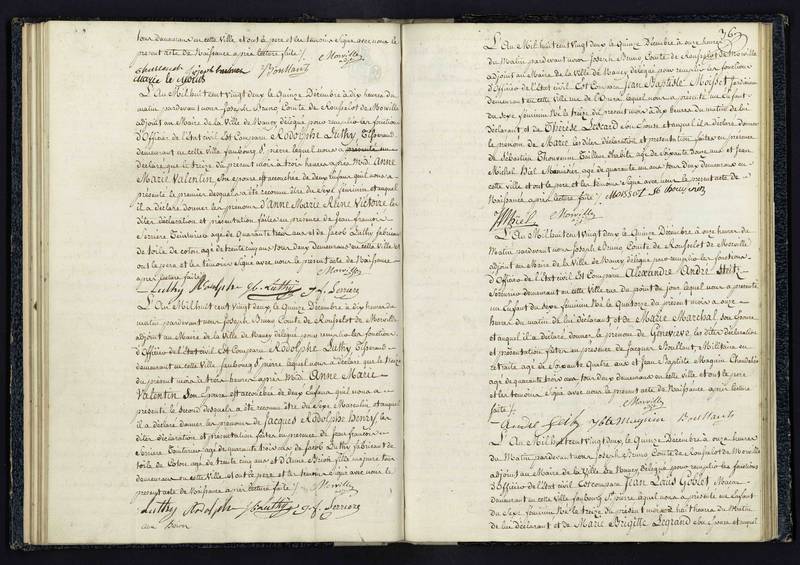 tous demeurans en cette Ville et ont le pere et les temoins Signé avec nous le
present acte de Naissance après lecture faite /. Morville
Marie le Boullant
L'An Mil huit cent Vingt deux le Quinze Décembre à dix heures du
matin pardevant nous Joseph Bruno Comte de Rousselot de Morville
adjoint au Maire de la Ville de Nancy délégué pour remplir les fonctions
d'Officier de l'Etat civil Est Comparu Rodolphe Luthy Tisserand
demeurant en cette Ville faubourg St pierre lequel nous a
déclaré que le treize du present mois à trois heures après midi Anne
Marie Valentin, Son Epouse est accouchée de deux Enfans qu'il nous a
présenté le premier desquels a été reconnu être du Sexe féminin et auquel
il a déclaré donner les prénoms d'Anne Marie Reine Victoire les
dites déclaration et présentation faites en présence de Jean françois
Serriere Teinturier agé de Quarante trois ans et de Jacob Luthy fabricant
de toile de coton agé de trente cinq ans tous deux demeurans en cette Ville et
ont le pere et les temoins Signé avec nous le présent acte de Naissance
après lecture faite /. Morville
Luthy Rodolph Jb. Luthy J. f. Serriere
L'An Mil huit cent Vingt deux, le Quinze Décembre à dix heures du
matin pardevant nous Joseph Bruno Comte de Rousselot de Morville
adjoint au Maire de la Ville de Nancy délégué pour remplir les fonctions
d'Officier de l'Etat civil Est Comparu Rodolphe Luthy Tisserand
demeurant en cette Ville faubourg St pierre lequel nous a déclaré que le treize
du present mois à trois heures après midi Anne Marie
Valentin Son Epouse est accouchée de deux Enfans qu'il nous a
présenté le Second desquels a été reconnu être du Sexe Masculin et auquel
il a déclaré donner les prénoms de Jacques Rodolphe Henry, les
dites déclaration et présentation faites en présence de Jean françois
Serriere Teinturier agé de quarante trois ans de Jacob Luthy fabricant de
toile de Coton agé de trente cinq ans et d'Anne
demeurans en cette Ville et ont le pere et les temoins Signé avec nous le
present acte de Naissance après lecture faite /. Morville
Luthy Rodolph Jb Luthy J. f. Serriere
369
L'An Mil huit cent Vingt deux le Quinze Décembre à onze heures
du Matin pardevant nous Joseph Bruno Comte de Rousselot de Morville
adjoint au Maire de la Ville de Nancy délégué pour remplir les fonctions
d'Officier de l'Etat civil Est Comparu Jean Baptiste Moisset Jardinier
demeurant en cette Ville lequel nous a présenté un Enfant
du Sexe féminin Né le treize du present mois à dix heures du matin de lui
déclarant et de Thérèse Liébard Son Epouse et auquel il a déclaré donner
le prénom de Marie les dites déclaration et présentation faites en présence
de Sébastien Thouvenin Tailleur d'habits agé de Soixante ans et Jean
Michel Hiel Menuisier agé de quarante un ans tous deux demeurans en
cette Ville et ont le pere et les temoins Signé avec nous le present acte de
Naissance après lecture faite /. Moisset Sb thouvenin
JM Hiel Morville
L'An Mil huit cent Vingt deux le Quinze Décembre à onze heures du
Matin pardevant nous Joseph Bruno Comte de Rousselot de Morville
adjoint au Maire de la Ville de Nancy délégué pour remplir les fonctions
d'Officier de l'Etat civil Est Comparu Alexandre André Steitz
Serrurier demeurant en cette Ville rue du point du jour lequel nous a présenté
un Enfant du Sexe féminin Né le Quatorze du present mois à onze
heures du matin de lui déclarant et de Marie Marchal son Epouse
et auquel il a déclaré donner le prénom de Geneviève les dites déclaration
et présentation faites en présence de Jacques Boullant, Militaire en
retraite agé de Soixante Quatre ans et Jean Baptiste Maguin
agé de quarante trois ans tous deux demeurans en cette Ville et ont le pere
et les temoins Signé avec nous le present acte de Naissance après lecture
faite /. Morville
André Jbte Maguin Boullant
L'An Mil huit cent Vingt deux, le Quinze Décembre à onze heures
du Matin pardevant nous Joseph Bruno Comte de Rousselot de Morville
adjoint au Maire de la Ville de Nancy délégué pour remplir les fonctions
d'Officier de l'Etat civil Est comparu Jean Louis Goblet
demeurant en cette Ville faubourg St pierre lequel nous a présenté un Enfant
du Sexe féminin Né le treize du présent mois à huit heures du Matin
de lui déclarant et de Marie Brigitte Legrand son Epouse et auquel